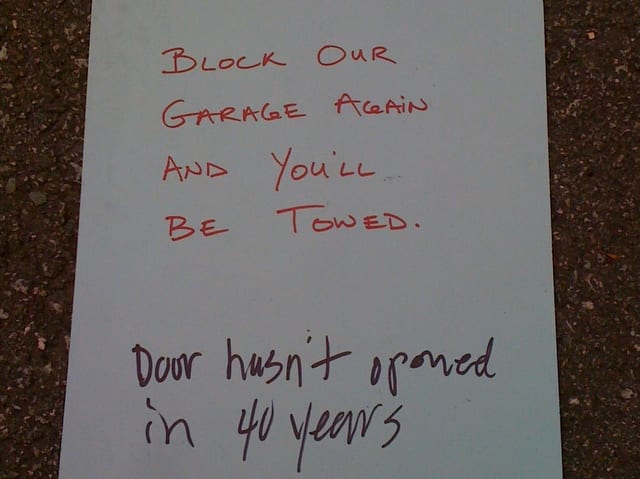 BLOCK OUR
GARAGE AGAIN
AND YOU'LL
BE TOWED.
Door hasn't opened
in 40 years